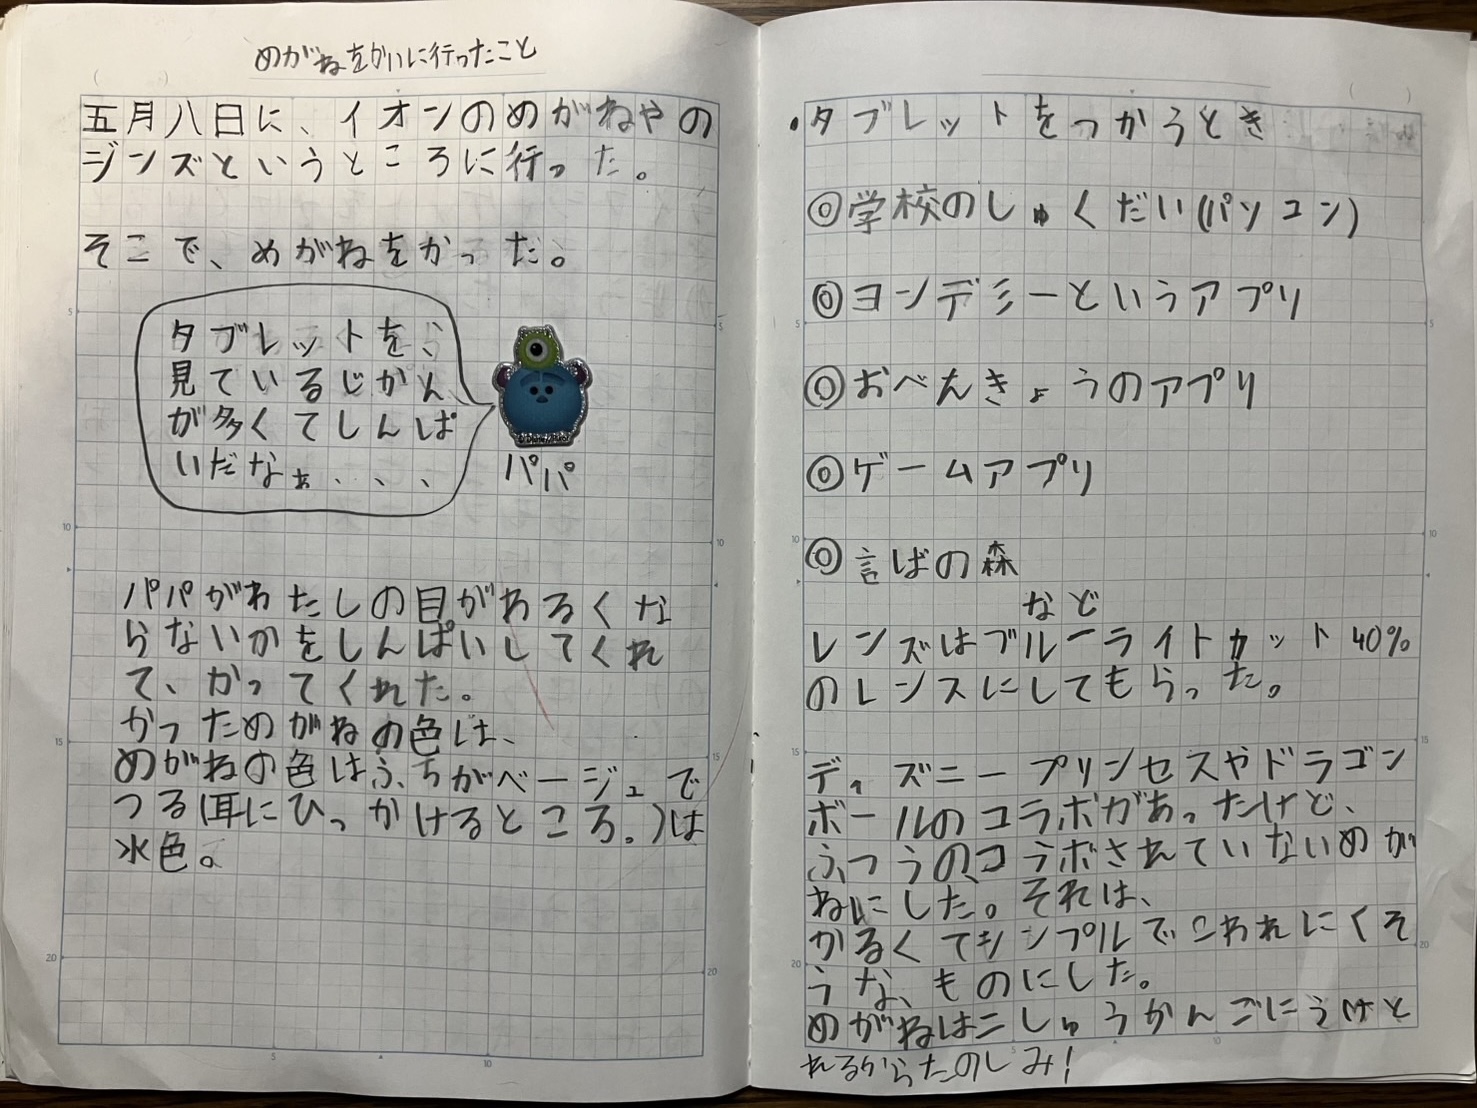 めがねをかいに行ったこと
五月八日に、イオンのめがねやの
ジンズというところに行った。
そこで、めがねをかった。
タブレットを、
見ているじかん
が多くてしんぱ
いだなぁ、、、
パパ
パパがわたしの目がわるくな
らないかをしんぱいしてくれ
て、かってくれた。
かっためがねの色は、
めがねの色はふちがベージュで
つる(耳にひっかけるところ。)は
水色。
・タブレットをつかうとき
◎学校のしゅくだい(パソコン)
◎ヨンデミーというアプリ
◎おべんきょうのアプリ
◎ゲームアプリ
◎言ばの森
など
レンズはブルーライトカット40%
のレンズにしてもらった。
ディズニープリンセスやドラゴン
ボールのコラボがあったけど、
ふつうのコラボされていないめが
ねにした。それは、
かるくてシンプルでこわれにくそ
うな、ものにした。
めがねは二しゅうかんごにうけと
れるからたのしみ!